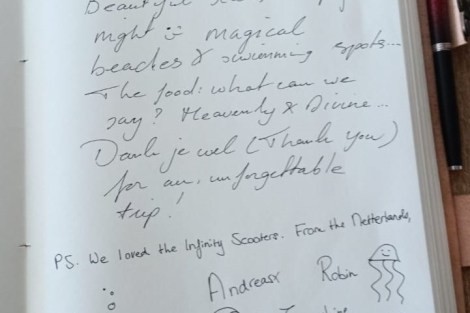 Beautiful
night :) magical
beaches & swimming spots...
The food: what can we
say? Heavenly & Divine...
Dank je wel (Thank you)
for an, unforgettable
trip!
PS. We loved the Infinity Scooters. From the Netherlands,
Andreas Robin